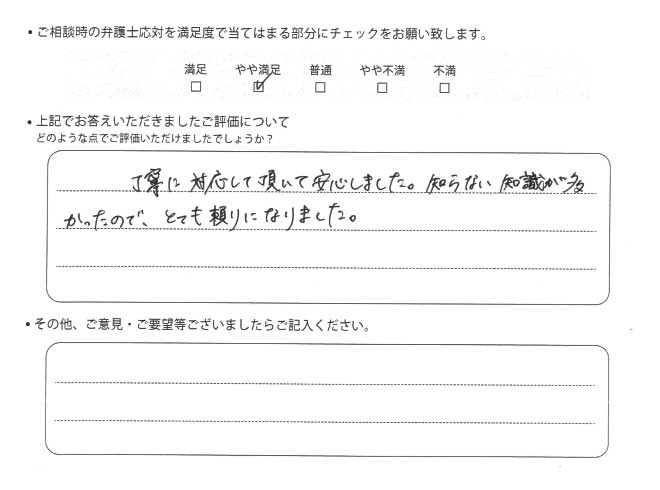 ・ご相談時の弁護士応対を満足度で当てはまる部分にチェックをお願い致します。
満足 やや満足 普通 やや不満 不満
□ ☑ □ □ □
・上記でお答えいただきましたご評価について
どのような点でご評価いただけましたでしょうか？
丁寧に対応して頂いて安心しました。知らない知識が多
かったので、とても頼りになりました。
・その他、ご意見・ご要望等ございましたらご記入ください。